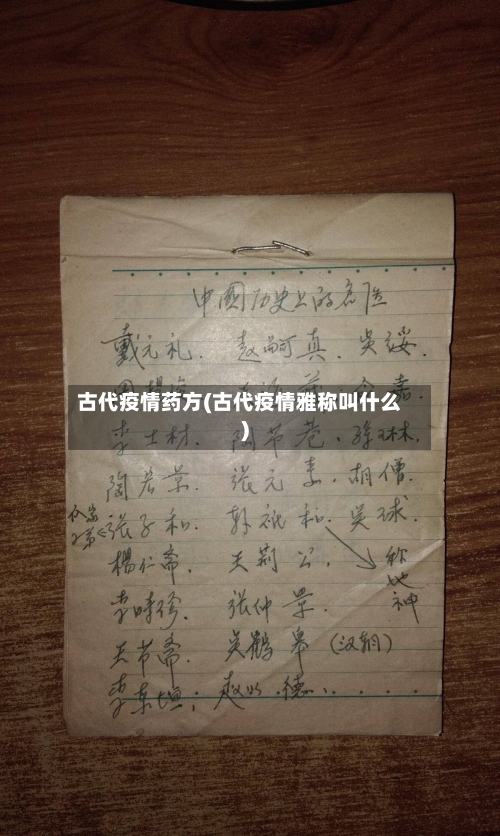 中國历史上的名医
戴元礼. 赵嗣真. 吴绶.
古代疫情药方(古代疫情雅称叫什么
)
李士材. 陶节菴. 徐琳.
陶若景. 张元素. 胡僧.
张子和. 韩祗和. 吴球.
楊仁斋. 天荊公. 称
地
神
李時珍. 张仲景.
王节斋. 吴鹤皋 (汉朝)
李东垣; 赵以德.